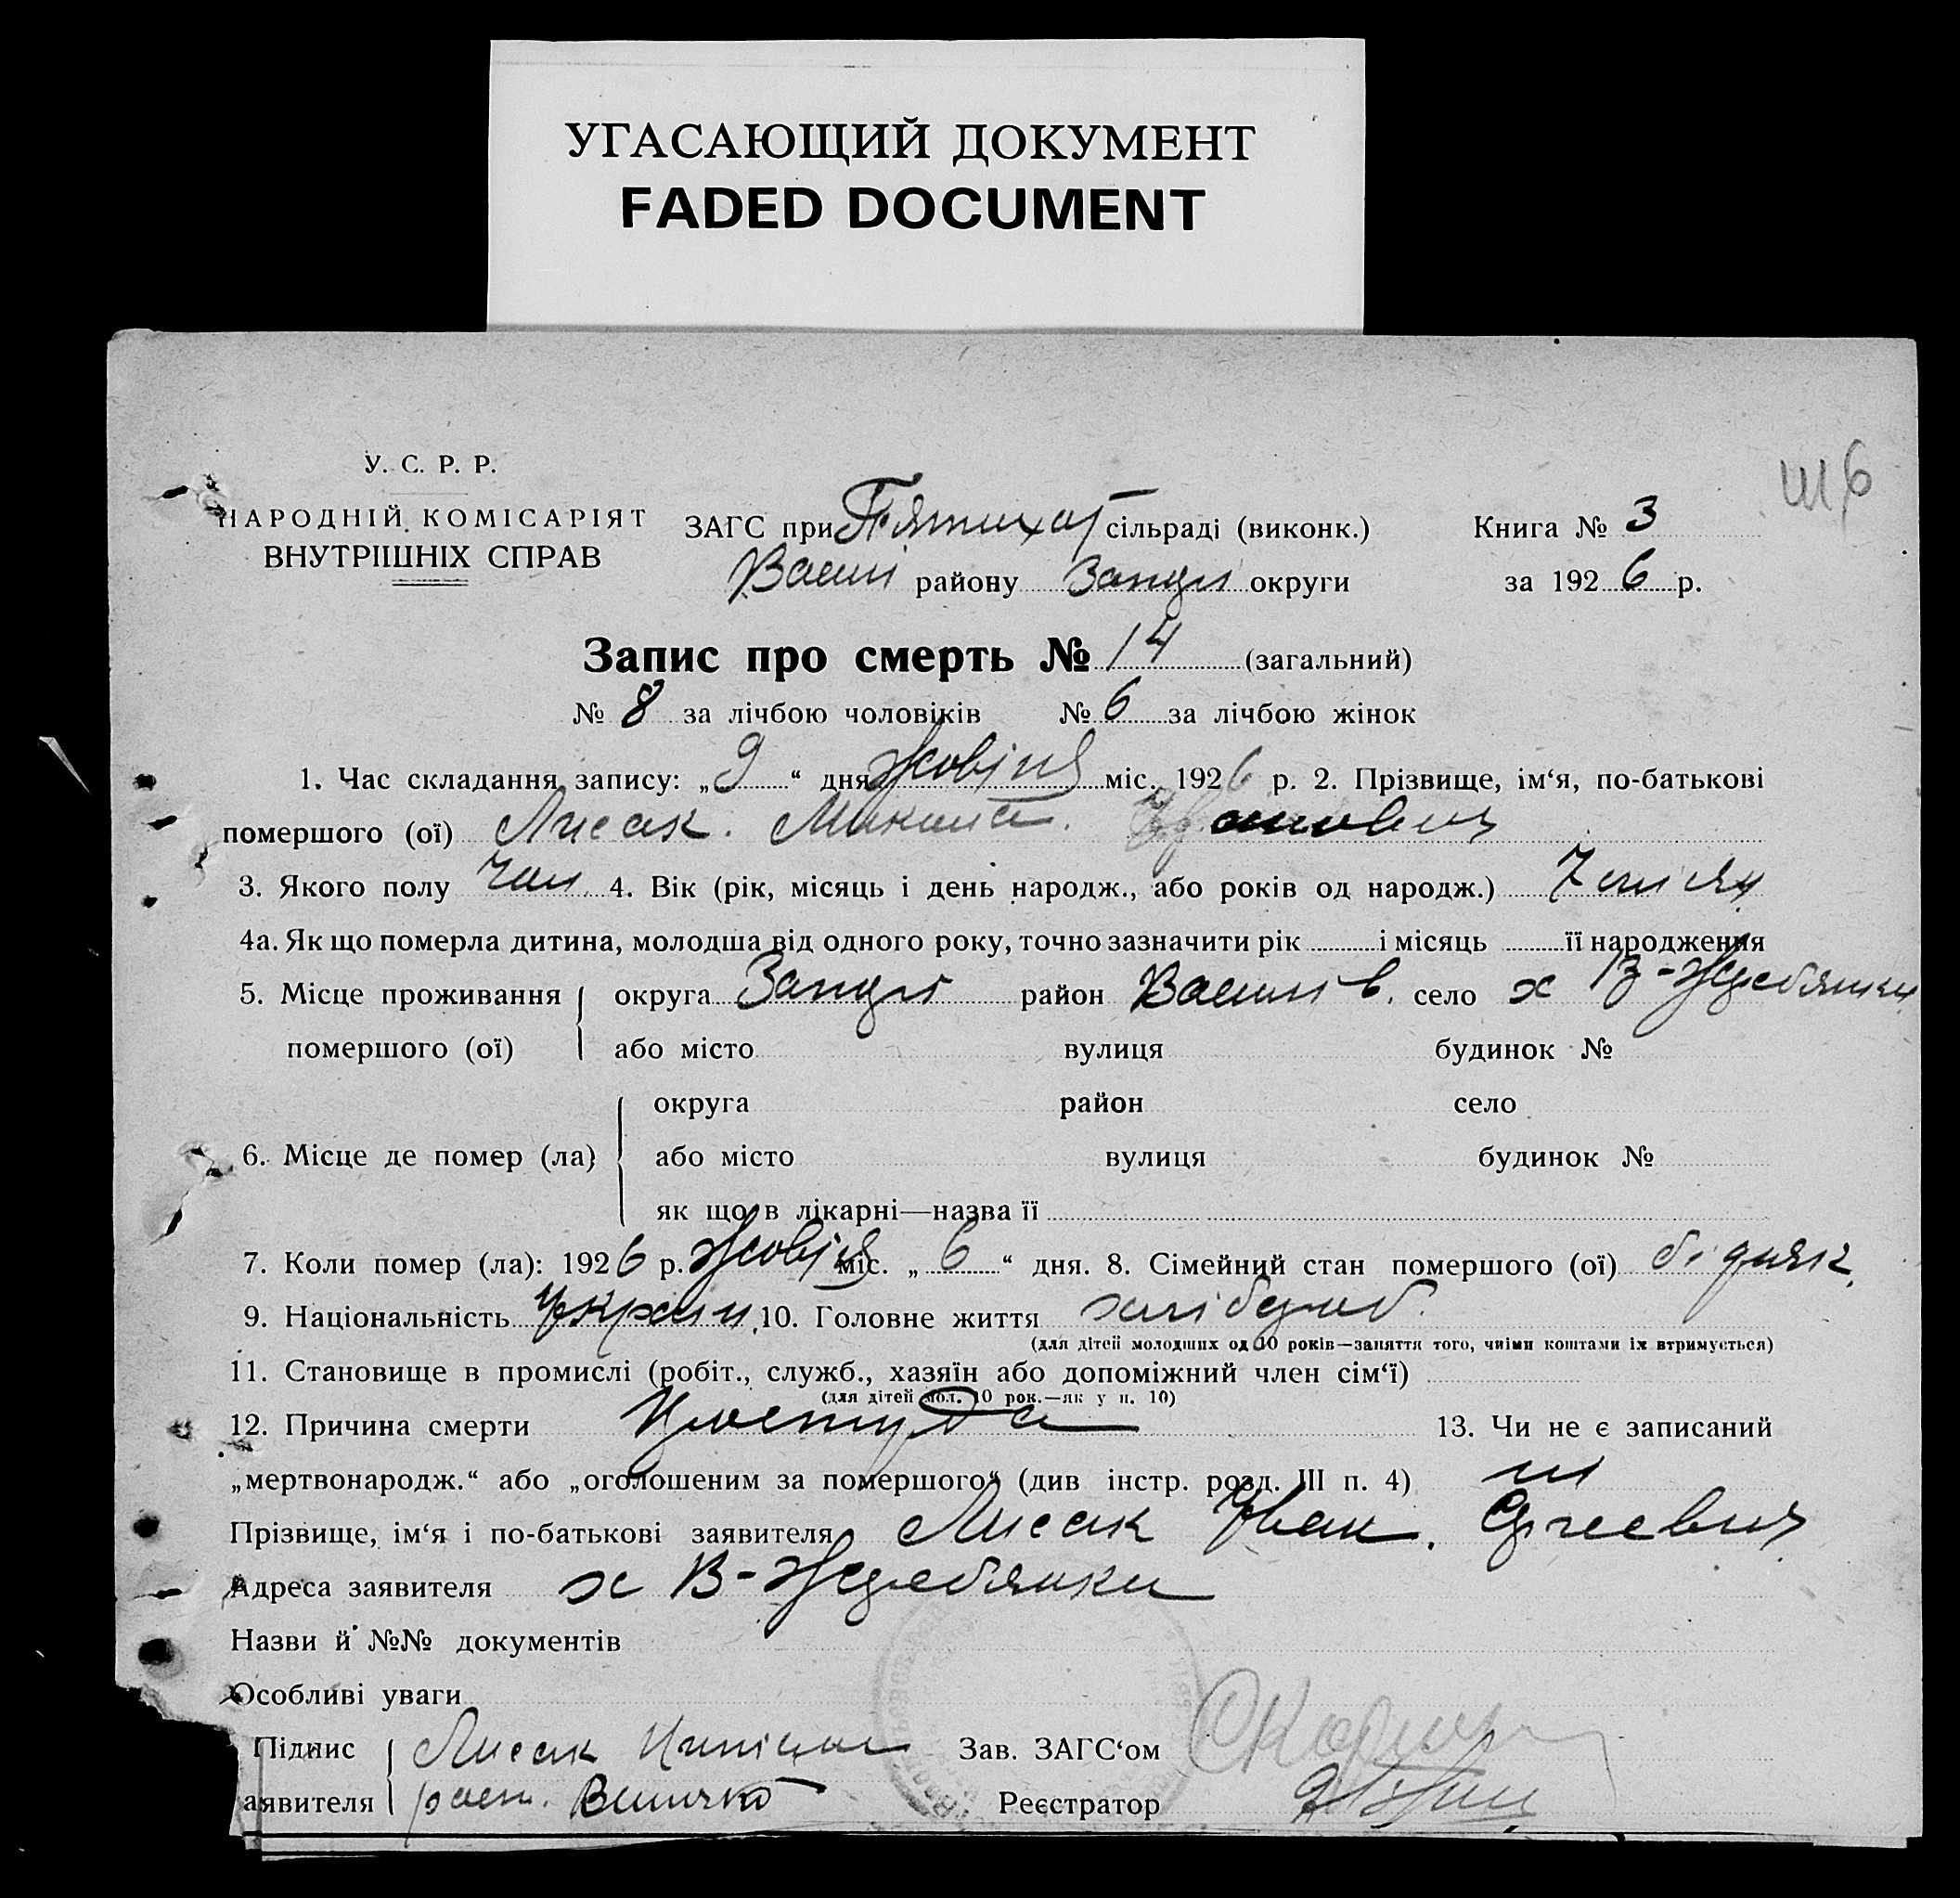 УГАСАЮЩИЙ ДОКУМЕНТ
FADED DOCUMENT
У. С. Р. Р.
НАРОДНІЙ КОМІСАРІЯТ
ВНУТРІШНІХ СПРАВ
ЗАГС при Пятихат сільраді (виконк.)
Книга № 3
Васил району Запор округи
за 1926 р.
Запис про смерть № 14 (загальний)
№ 8 за лічбою чоловіків № 6 за лічбою жінок
1. Час складання запису: „9“ дня Жовтня міс. 1926 р. 2. Прізвище, ім‘я, по-батькові
помершого (ої) Лисак. Микита. Іванович
3. Якого полу чол 4. Вік (рік, місяць і день народж., або років од народж.) 7
4а. Як що померла дитина, молодша від одного року, точно зазначити рік і місяць її народження
5. Місце проживання помершого (ої) округа Запор район Василів. село х В-Жеребянки
або місто вулиця будинок №
6. Місце де помер (ла) округа район село
або місто вулиця будинок №
як що в лікарні—назва її
7. Коли помер (ла): 1926 р. Жовтня міс. „6“ дня. 8. Сімейний стан помершого (ої) бідняк.
9. Національність Україн. 10. Головне життя хліборob.
(для дітей молодших од 10 років—заняття того, чиїми коштами їх втримується)
11. Становище в промислі (робіт., служб., хазяїн або допоміжний член сім‘ї)
(для дітей мол. 10 рок.—як у п. 10)
12. Причина смерти Простуда 13. Чи не є записаний
„мертвонародж.“ або „оголошеним за помершого“ (див інстр. розд. III п. 4) ні
Прізвище, ім‘я і по-батькові заявителя Лисак Іван. Сергеевич
Адреса заявителя х В-Жеребянка
Назви й №№ документів
Особливі уваги
Підпис Лисак Зав. ЗАГС‘ом
аявителя Реєстратор